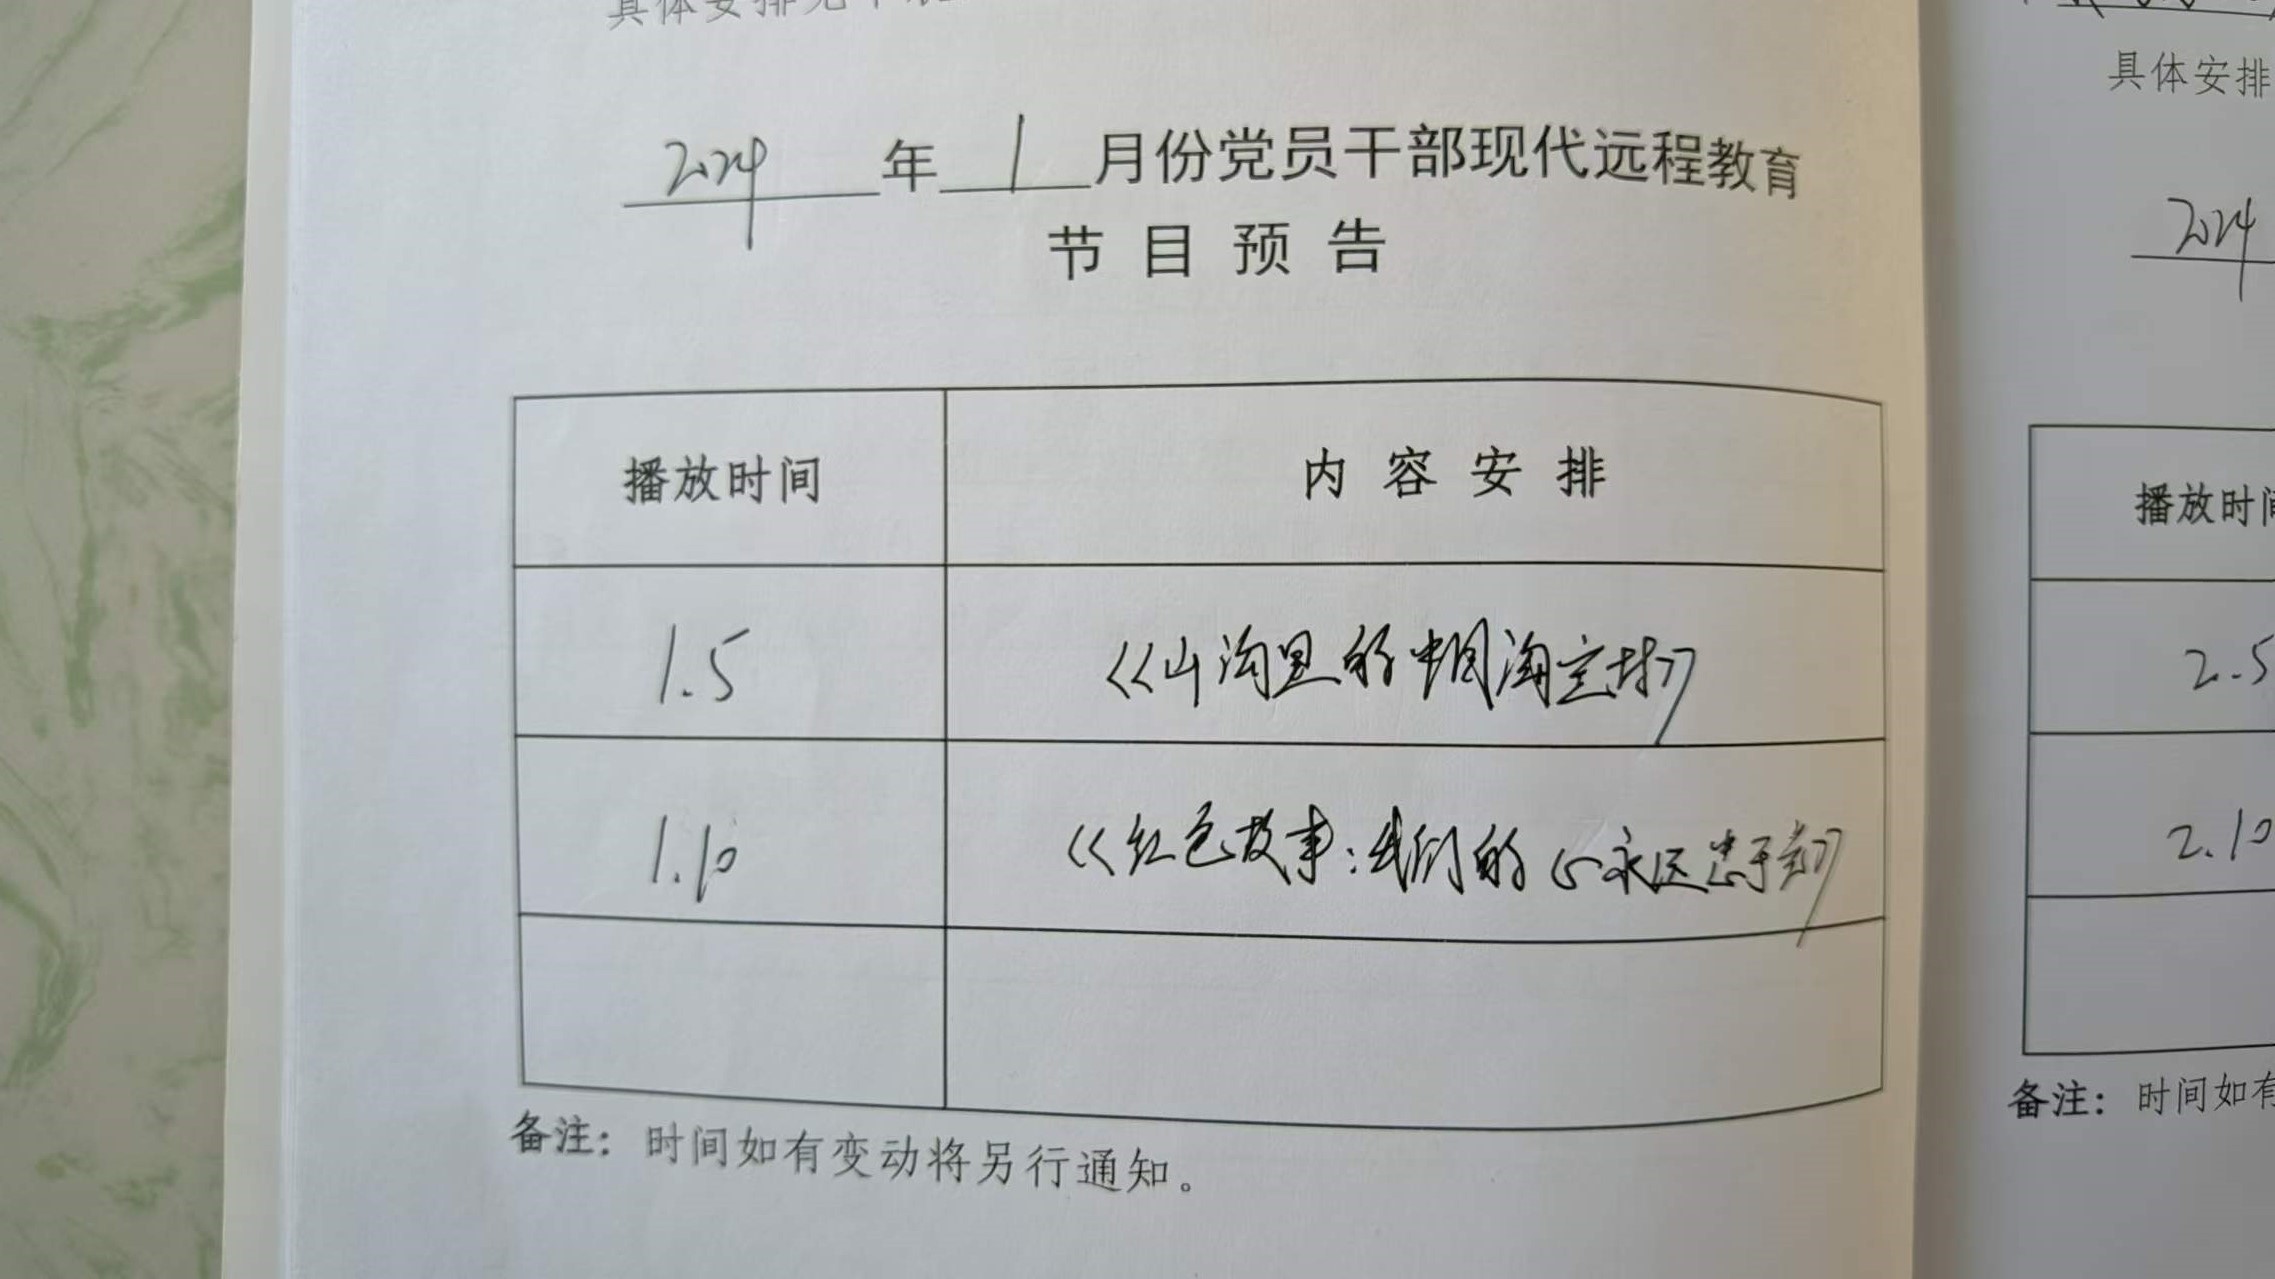 2024年1月份党员干部现代远程教育
节目预告
播放时间 内容安排
1.5 《山沟里的中国淘宝村》
1.10 《红色故事：我们的心永远忠于党》
备注：时间如有变动将另行通知。
具体安排
2024
播放时间
2.5
2.10
备注：时间如有